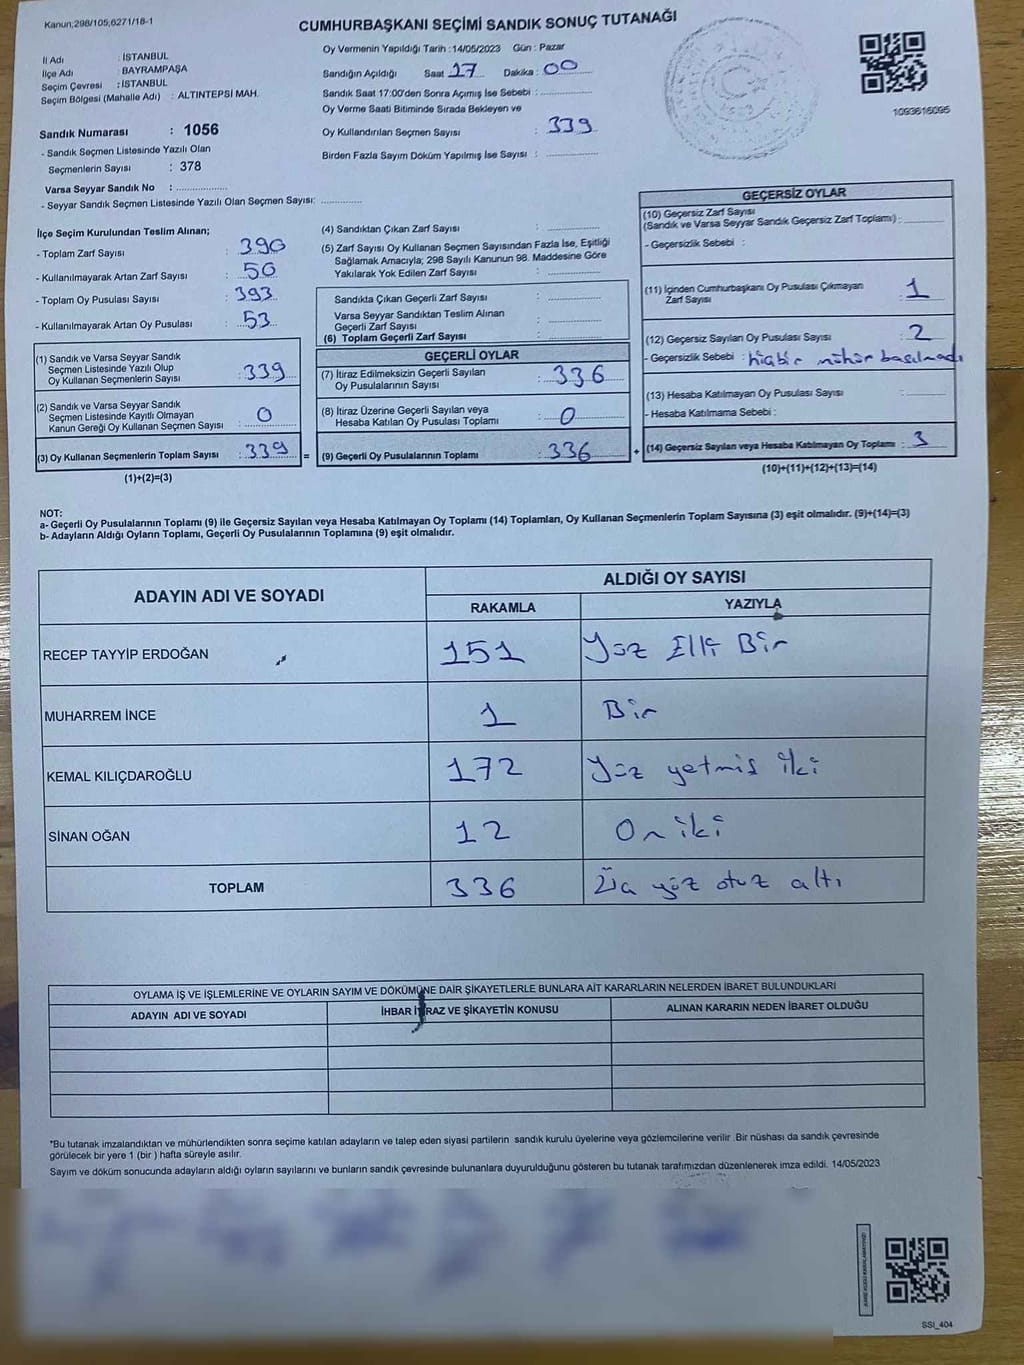 Kanun;298/105;6271/18-1
CUMHURBAŞKANI SEÇİMİ SANDIK SONUÇ TUTANAĞI
İl Adı : İSTANBUL
İlçe Adı : BAYRAMPAŞA
Seçim Çevresi : İSTANBUL
Seçim Bölgesi (Mahalle Adı) : ALTINTEPSİ MAH.
Sandık Numarası : 1056
- Sandık Seçmen Listesinde Yazılı Olan
Seçmenlerin Sayısı : 378
Varsa Seyyar Sandık No :
- Seyyar Sandık Seçmen Listesinde Yazılı Olan Seçmen Sayısı:
Oy Vermenin Yapıldığı Tarih : 14/05/2023 Gün : Pazar
Sandığın Açıldığı Saat 17 Dakika : 00
Sandık Saat 17:00'den Sonra Açımış İse Sebebi :
Oy Verme Saati Bitiminde Sırada Bekleyen ve
Oy Kullandırılan Seçmen Sayısı : 339
Birden Fazla Sayım Döküm Yapılmış İse Sayısı :
1093616095
İlçe Seçim Kurulundan Teslim Alınan;
- Toplam Zarf Sayısı : 390
- Kullanılmayarak Artan Zarf Sayısı : 50
- Toplam Oy Pusulası Sayısı : 393
- Kullanılmayarak Artan Oy Pusulası : 53
(1) Sandık ve Varsa Seyyar Sandık
Seçmen Listesinde Yazılı Olup
Oy Kullanan Seçmenlerin Sayısı : 339
(2) Sandık ve Varsa Seyyar Sandık
Seçmen Listesinde Kayıtlı Olmayan
Kanun Gereği Oy Kullanan Seçmen Sayısı : 0
(3) Oy Kullanan Seçmenlerin Toplam Sayısı : 339 =
(1)+(2)=(3)
(4) Sandıktan Çıkan Zarf Sayısı :
(5) Zarf Sayısı Oy Kullanan Seçmen Sayısından Fazla İse, Eşitliği
Sağlamak Amacıyla; 298 Sayılı Kanunun 98. Maddesine Göre
Yakılarak Yok Edilen Zarf Sayısı :
Sandıkta Çıkan Geçerli Zarf Sayısı :
Varsa Seyyar Sandıktan Teslim Alınan
Geçerli Zarf Sayısı :
(6) Toplam Geçerli Zarf Sayısı :
GEÇERLİ OYLAR
(7) İtiraz Edilmeksizin Geçerli Sayılan
Oy Pusulalarının Sayısı : 336
(8) İtiraz Üzerine Geçerli Sayılan veya
Hesaba Katılan Oy Pusulası Toplamı : 0
(9) Geçerli Oy Pusulalarının Toplamı : 336 +
GEÇERSİZ OYLAR
(10) Geçersiz Zarf Sayısı
(Sandık ve Varsa Seyyar Sandık Geçersiz Zarf Toplamı) :
- Geçersizlik Sebebi :
(11) İçinden Cumhurbaşkanı Oy Pusulası Çıkmayan
Zarf Sayısı : 1
(12) Geçersiz Sayılan Oy Pusulası Sayısı : 2
- Geçersizlik Sebebi : hiçbir mühür basılmadı
(13) Hesaba Katılmayan Oy Pusulası Sayısı :
- Hesaba Katılmama Sebebi :
(14) Geçersiz Sayılan veya Hesaba Katılmayan Oy Toplamı : 3
(10)+(11)+(12)+(13)=(14)
NOT:
a- Geçerli Oy Pusulalarının Toplamı (9) ile Geçersiz Sayılan veya Hesaba Katılmayan Oy Toplamı (14) Toplamları, Oy Kullanan Seçmenlerin Toplam Sayısına (3) eşit olmalıdır. (9)+(14)=(3)
b- Adayların Aldığı Oyların Toplamı, Geçerli Oy Pusulalarının Toplamına (9) eşit olmalıdır.
ADAYIN ADI VE SOYADI ALDIĞI OY SAYISI
RAKAMLA YAZIYLA
RECEP TAYYİP ERDOĞAN 151 Yüz Elli Bir
MUHARREM İNCE 1 Bir
KEMAL KILIÇDAROĞLU 172 Yüz yetmiş iki
SİNAN OĞAN 12 On iki
TOPLAM 336 Üç yüz otuz altı
OYLAMA İŞ VE İŞLEMLERİNE VE OYLARIN SAYIM VE DÖKÜMÜNE DAİR ŞİKAYETLERLE BUNLARA AİT KARARLARIN NELERDEN İBARET BULUNDUKLARI
ADAYIN ADI VE SOYADI İHBAR İTİRAZ VE ŞİKAYETİN KONUSU ALINAN KARARIN NEDEN İBARET OLDUĞU
*Bu tutanak imzalandıktan ve mühürlendikten sonra seçime katılan adayların ve talep eden siyasi partilerin sandık kurulu üyelerine veya gözlemcilerine verilir .Bir nüshası da sandık çevresinde
görülecek bir yere 1 (bir ) hafta süreyle asılır.
Sayım ve döküm sonucunda adayların aldığı oyların sayılarını ve bunların sandık çevresinde bulunanlara duyurulduğunu gösteren bu tutanak tarafımızdan düzenlenerek imza edildi. 14/05/2023
SSI_404